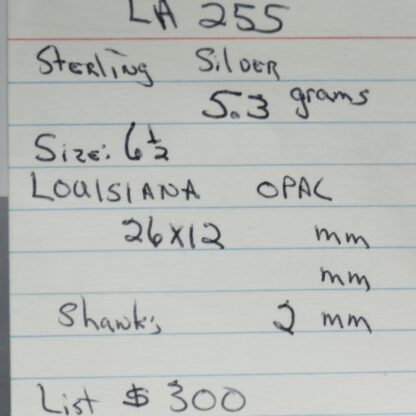 LA 255
Sterling Silver
5.3 grams
Size: 6 1/2
LOUISIANA OPAL
26x12 mm
mm
Shank: 2 mm
List $ 300